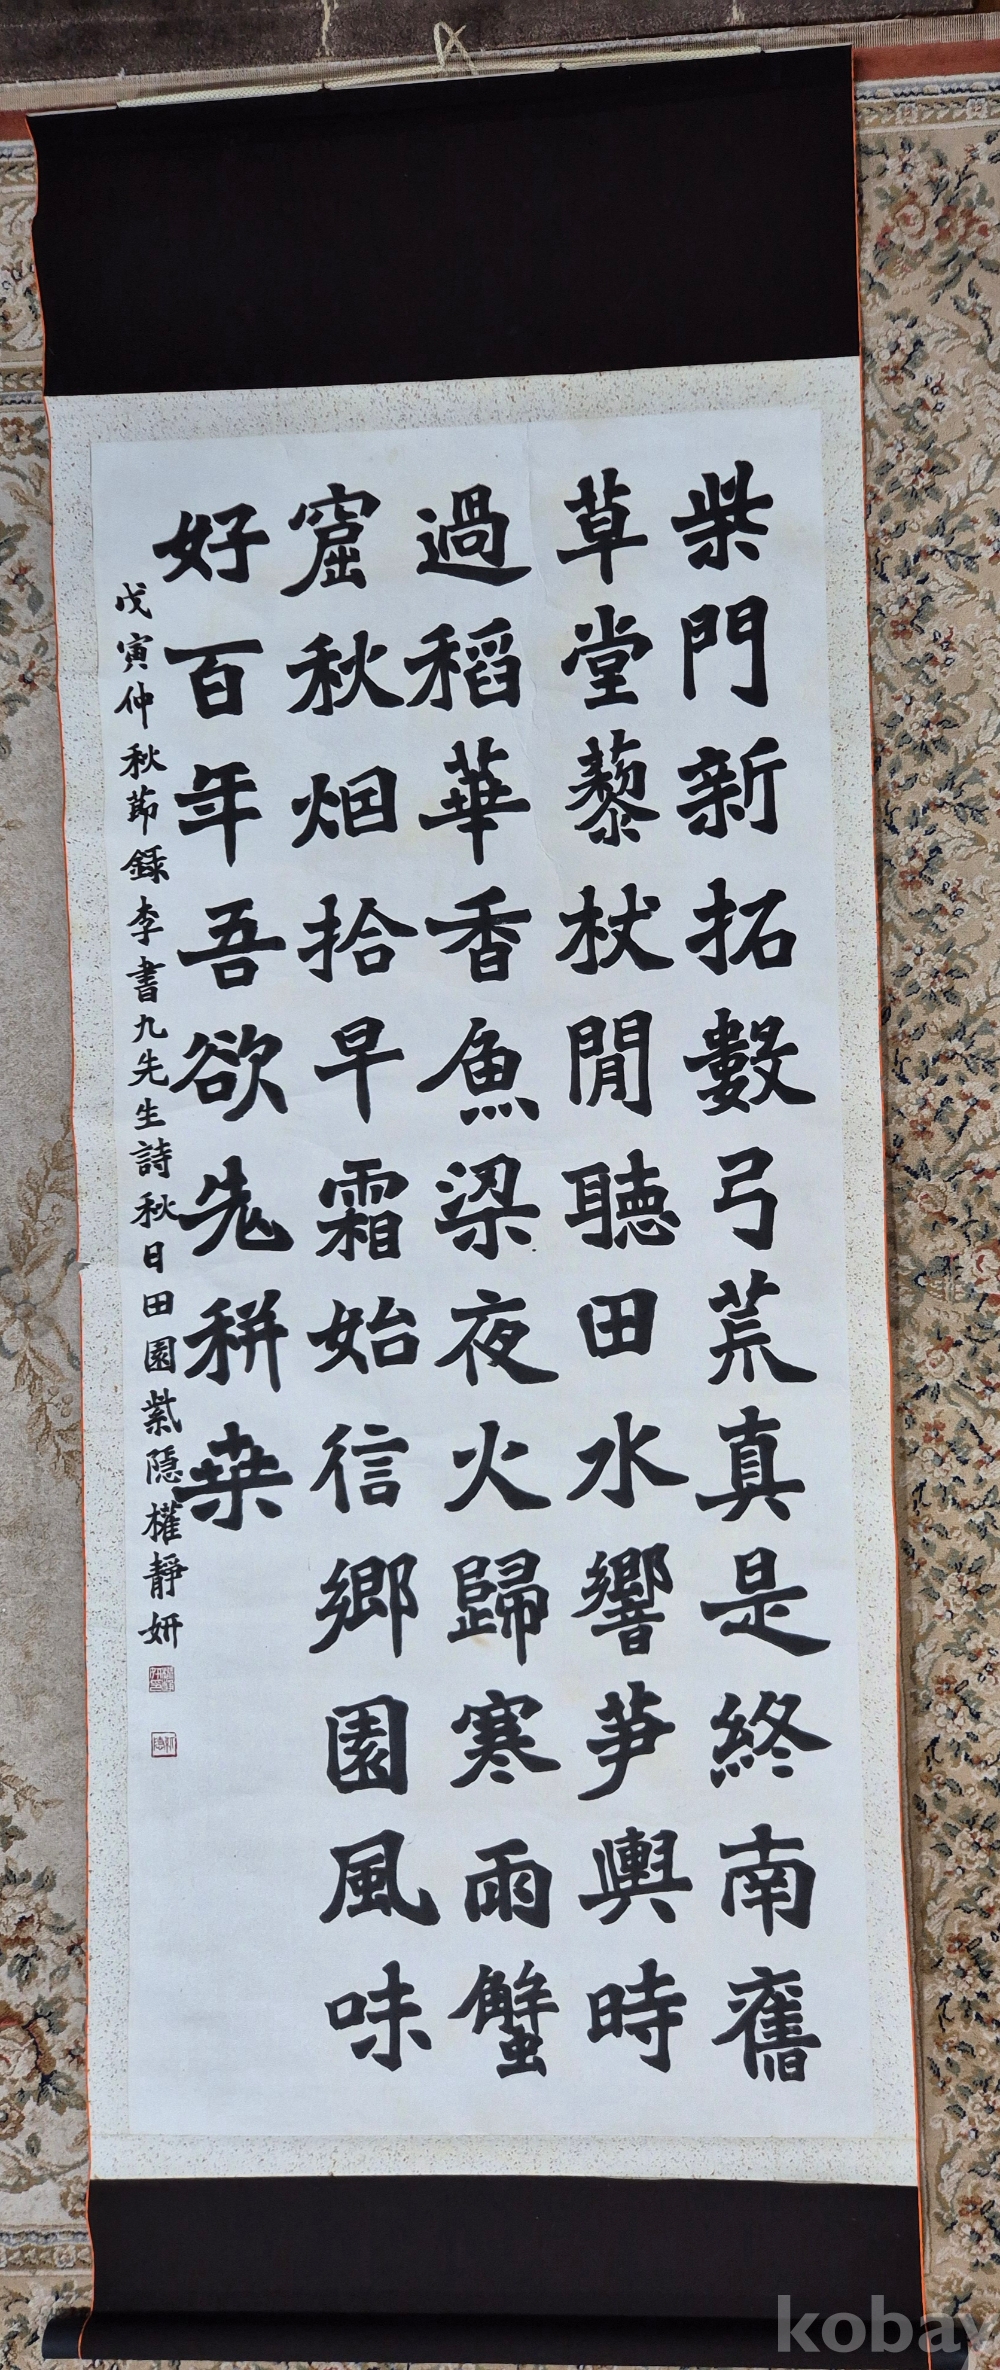 柴門新拓數弓荒真是終南舊
草堂藜杖閒聽田水響笋輿時
過稻華香魚梁夜火歸寒雨蟹
窟秋烟拾早霜始信鄉園風味
好百年吾欲先耕桑
戊寅仲秋節錄李書九先生詩秋日田園紫隱權靜妍
kobay